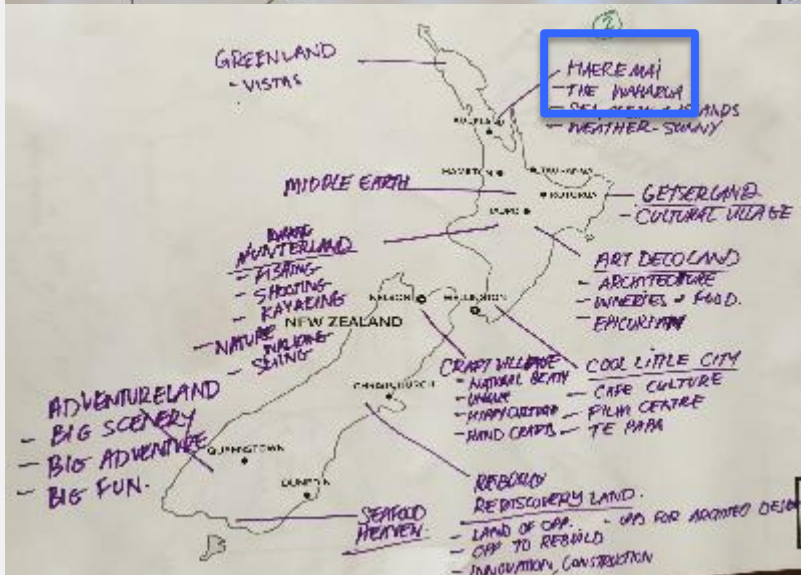 ②
GREENLAND
- VISTAS
HAERE MAI
- THE WAHAROA
ISLANDS
- WEATHER - SUNNY
AUCKLAND
HAMILTON
TAURANGA
ROTORUA
TAUPO
MIDDLE EARTH
GEYSERLAND
- CULTURAL VILLAGE
HUNTERLAND
- FISHING
- SHOOTING
- KAYAKING
- NATURE WALKING
- SKIING
ART DECOLAND
- ARCHITECTURE
- WINERIES + FOOD.
- EPICUREAN
NELSON
WELLINGTON
NEW ZEALAND
CRAFT VILLAGE
- NATURAL BEATY
- UNIQUE
- HIPPY CULTURE
- HAND CRAFTS
COOL LITTLE CITY
- CAFE CULTURE
- FILM CENTRE
- TE PAPA
CHRISTCHURCH
ADVENTURELAND
- BIG SCENERY
- BIG ADVENTURE
- BIG FUN.
QUEENSTOWN
DUNEDIN
SEAFOOD
HEAVEN.
REBUILD
REDISCOVERY LAND.
- LAND OF OPP.
- OPP TO REBUILD
- INNOVATION, CONSTRUCTION
FOR